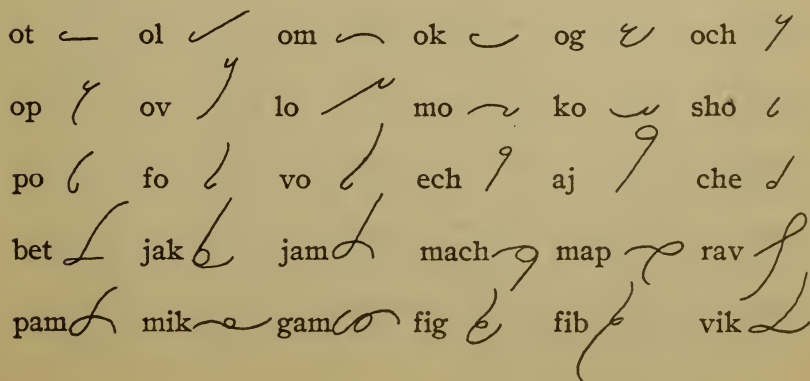 ot ol om ok og och
op ov lo mo ko sho
po fo vo ech aj che
bet jak jam mach map rav
pam mik gam fig fib vik